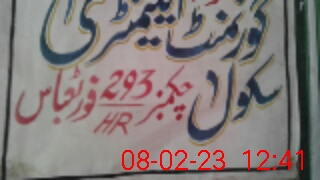 گورنمنٹ ایلیمنٹری
سکول چکنمبر 293/HR فورٹعباس
08-02-23 12:41